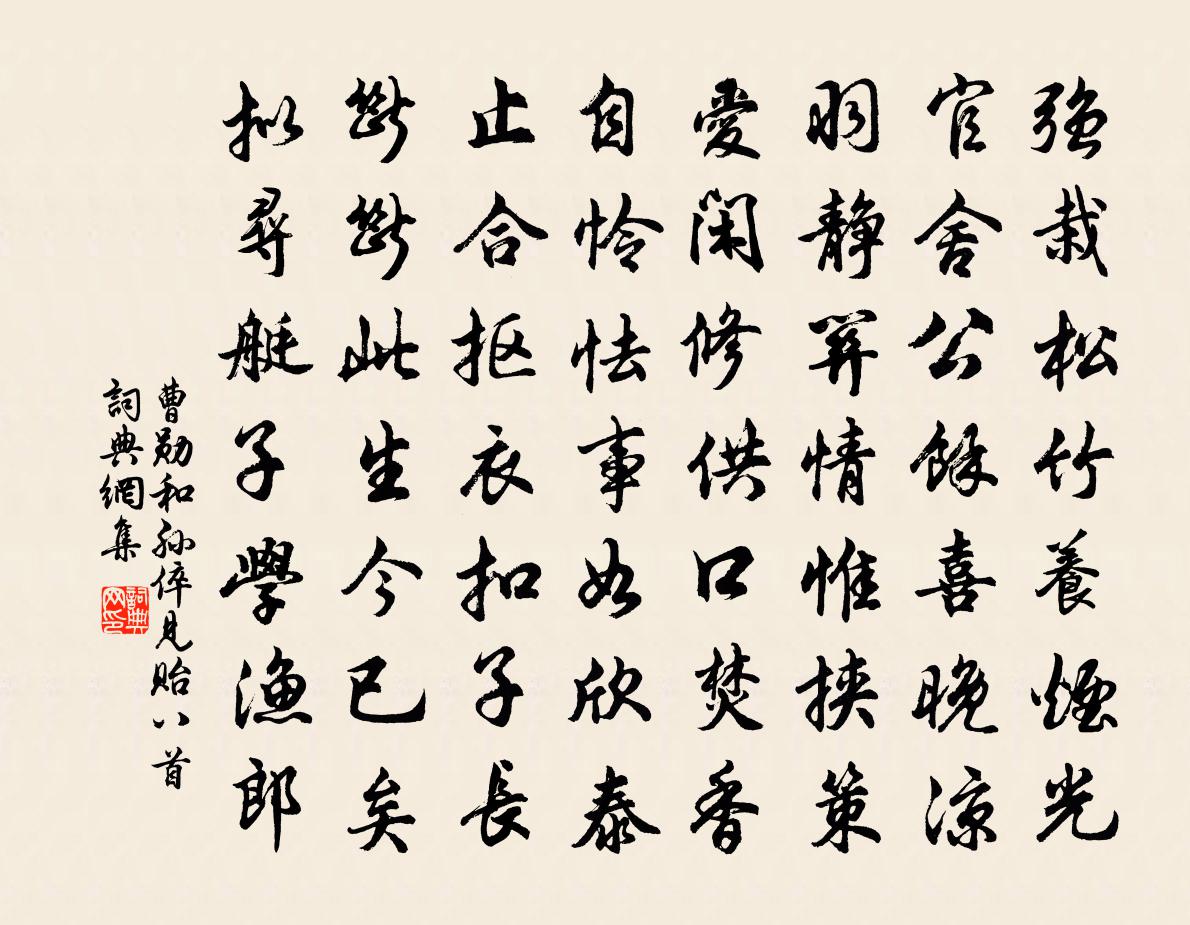 强栽松竹養煙光
官舍公餘喜晚涼
羽静情惟挟策
愛閑修供口焚香
自怜怯事如欣泰
止合抠衣扣子長
斷斷此生今已矣
拟尋艇子學漁郎
曹勋和孙倅見贻八首
詞典網集
詞典网印